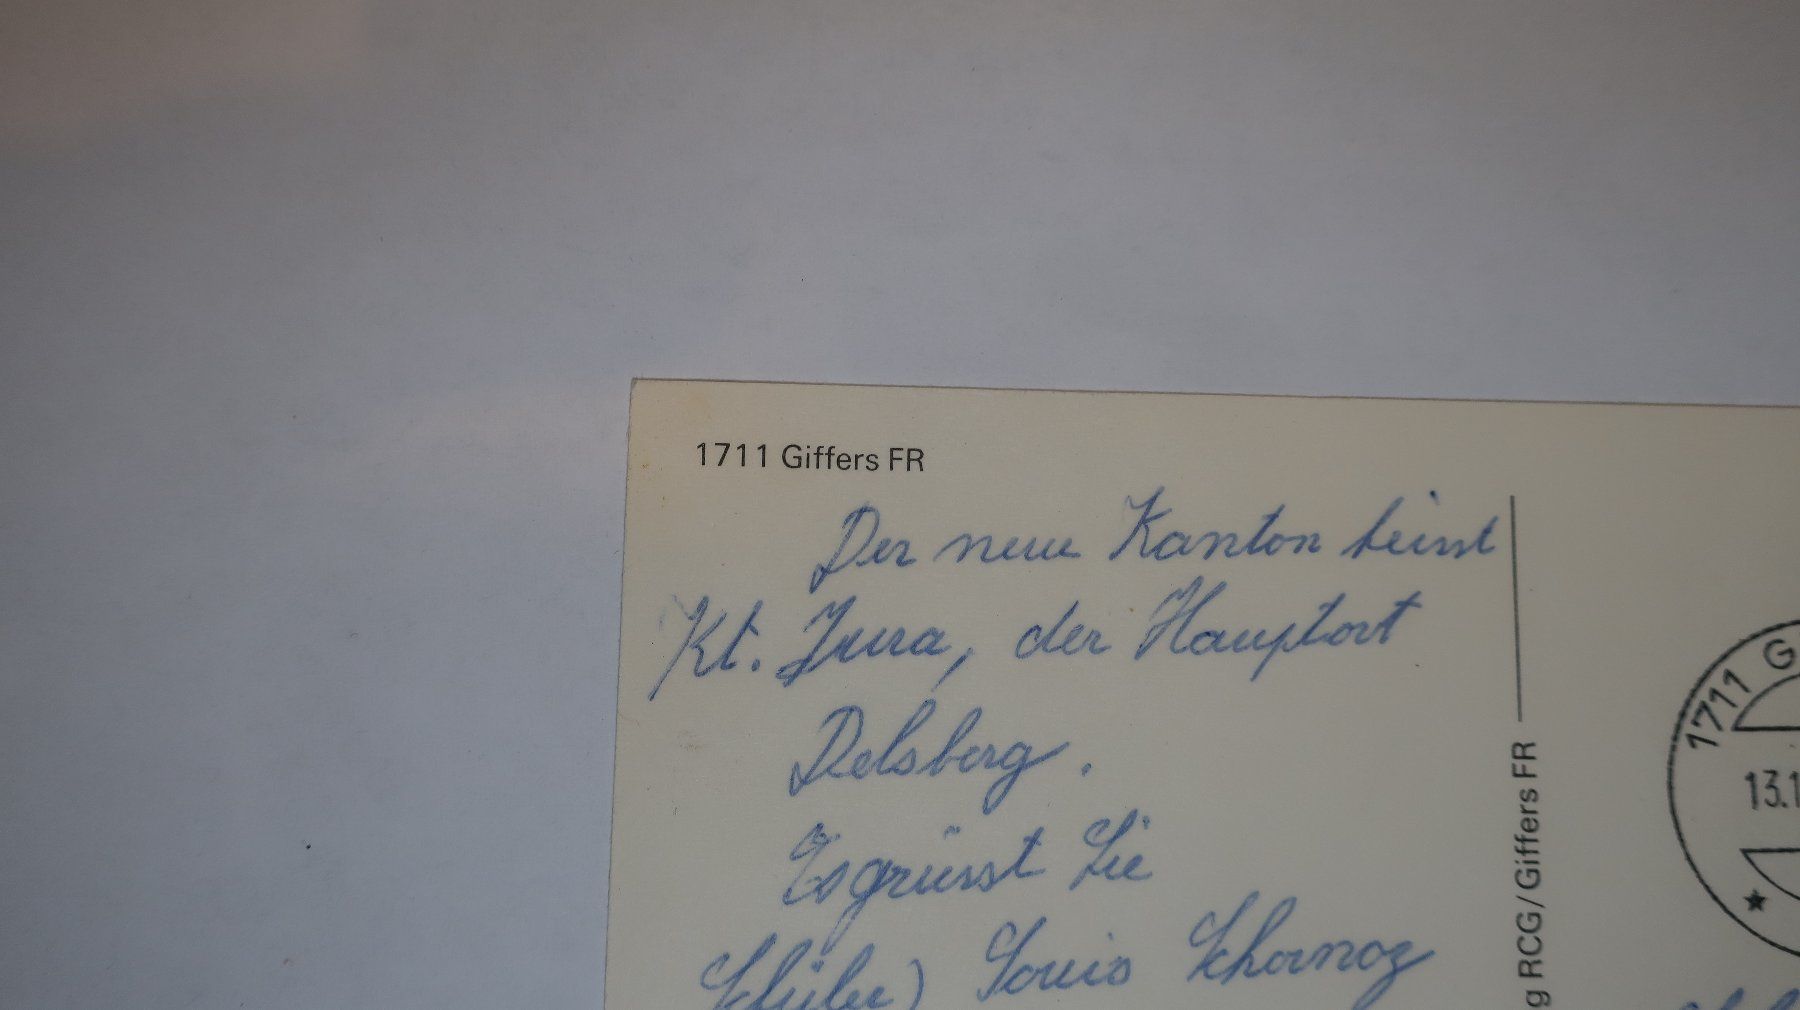 1711 Giffers FR
Der neue Kanton heisst
Kt. Jura, der Hauptort
Delsberg.
Es grüsst Sie
(Schüler) Louis Schornoz
g RCG/Giffers FR
1711 G
13.1